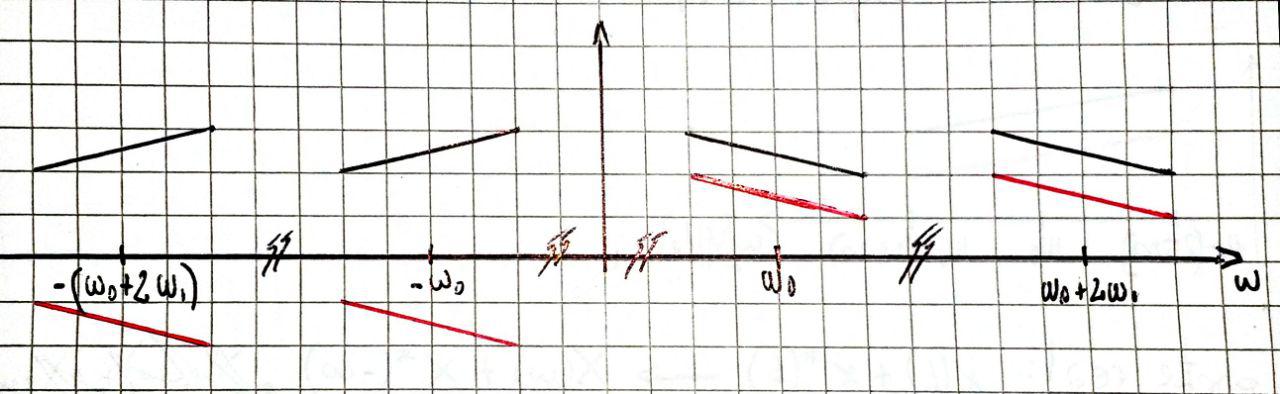 -(ω₀+2ω₁) -ω₀ ω₀ ω₀+2ω₁ ω